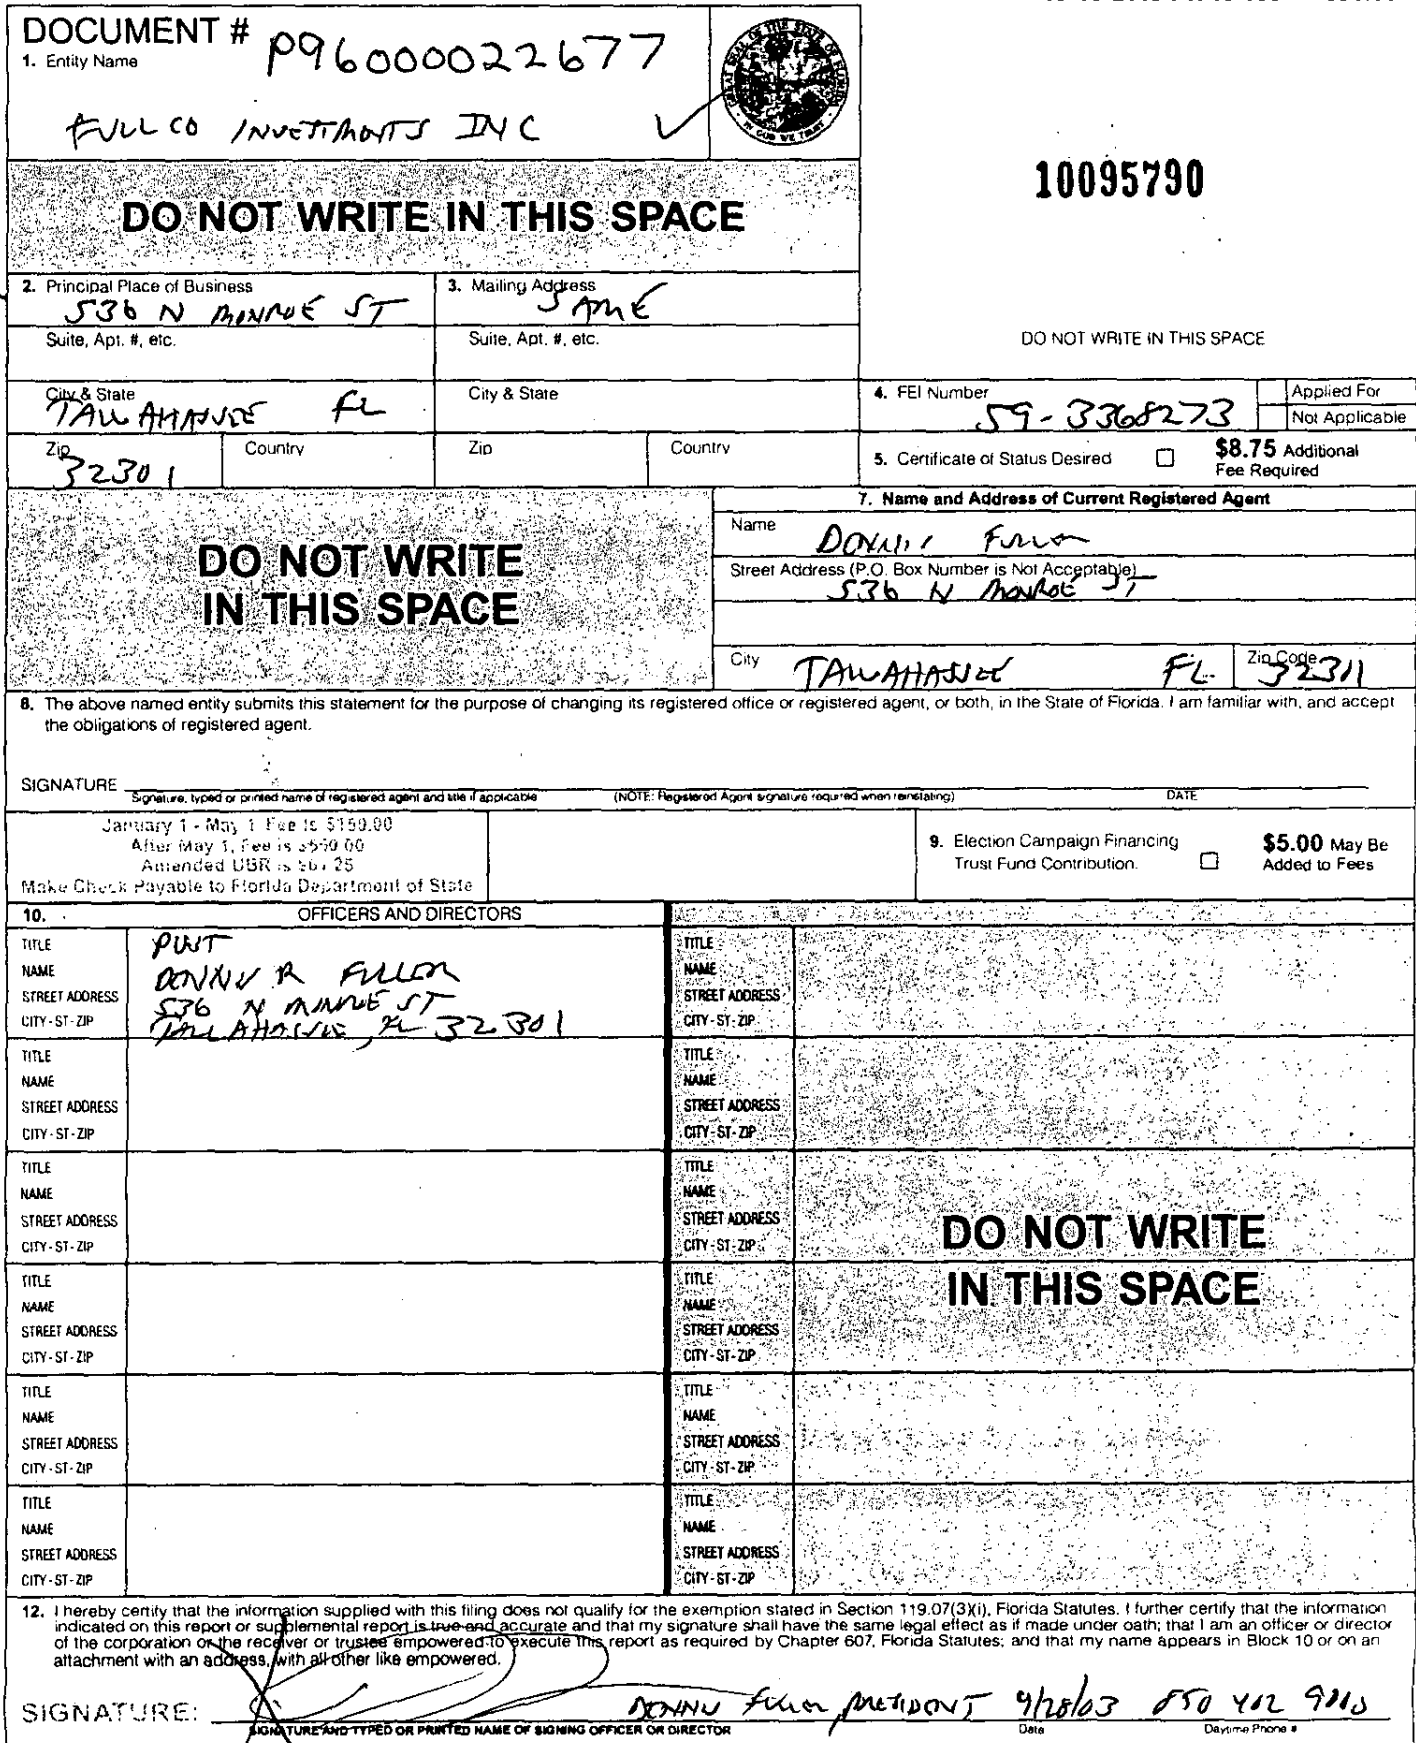 DOCUMENT # P96000022677
1. Entity Name
FULLCO INVESTMENTS INC
GREAT SEAL OF THE STATE OF FLORIDA
IN GOD WE TRUST
10095790
DO NOT WRITE IN THIS SPACE
2. Principal Place of Business
536 N MONROE ST
3. Mailing Address
SAME
Suite, Apt. #, etc.
Suite, Apt. #, etc.
DO NOT WRITE IN THIS SPACE
City & State
TALLAHASSEE FL
City & State
4. FEI Number
59-3368273
Applied For
Not Applicable
Zip
32301
Country
Zip
Country
5. Certificate of Status Desired
$8.75 Additional
Fee Required
DO NOT WRITE
IN THIS SPACE
7. Name and Address of Current Registered Agent
Name
DONNIE FULLER
Street Address (P.O. Box Number is Not Acceptable)
536 N MONROE ST
City
TALLAHASSEE FL
Zip Code
32311
8. The above named entity submits this statement for the purpose of changing its registered office or registered agent, or both, in the State of Florida. I am familiar with, and accept
the obligations of registered agent.
SIGNATURE
Signature, typed or printed name of registered agent and title if applicable
(NOTE: Registered Agent signature required when reinstating)
DATE
January 1 - May 1 Fee is $150.00
After May 1, Fee is $550.00
Amended UBR is $61.25
Make Check Payable to Florida Department of State
9. Election Campaign Financing
Trust Fund Contribution.
$5.00 May Be
Added to Fees
10. OFFICERS AND DIRECTORS
TITLE
NAME DONNIE R FULLER
STREET ADDRESS 536 N MONROE ST
CITY-ST-ZIP TALLAHASSEE, FL 32301
TITLE
NAME
STREET ADDRESS
CITY-ST-ZIP
TITLE
NAME
STREET ADDRESS
CITY-ST-ZIP
TITLE
NAME
STREET ADDRESS
CITY-ST-ZIP
TITLE
NAME
STREET ADDRESS
CITY-ST-ZIP
TITLE
NAME
STREET ADDRESS
CITY-ST-ZIP
TITLE
NAME
STREET ADDRESS
CITY-ST-ZIP
TITLE
NAME
STREET ADDRESS
CITY-ST-ZIP
TITLE
NAME
STREET ADDRESS
CITY-ST-ZIP
TITLE
NAME
STREET ADDRESS
CITY-ST-ZIP
TITLE
NAME
STREET ADDRESS
CITY-ST-ZIP
TITLE
NAME
STREET ADDRESS
CITY-ST-ZIP
DO NOT WRITE
IN THIS SPACE
12. I hereby certify that the information supplied with this filing does not qualify for the exemption stated in Section 119.07(3)(i), Florida Statutes. I further certify that the information
indicated on this report or supplemental report is true and accurate and that my signature shall have the same legal effect as if made under oath; that I am an officer or director
of the corporation or the receiver or trustee empowered to execute this report as required by Chapter 607, Florida Statutes; and that my name appears in Block 10 or on an
attachment with an address, with all other like empowered.
SIGNATURE: DONNIE FULLER, PRESIDENT 9/28/03 850 402
SIGNATURE AND TYPED OR PRINTED NAME OF SIGNING OFFICER OR DIRECTOR
Date
Daytime Phone #